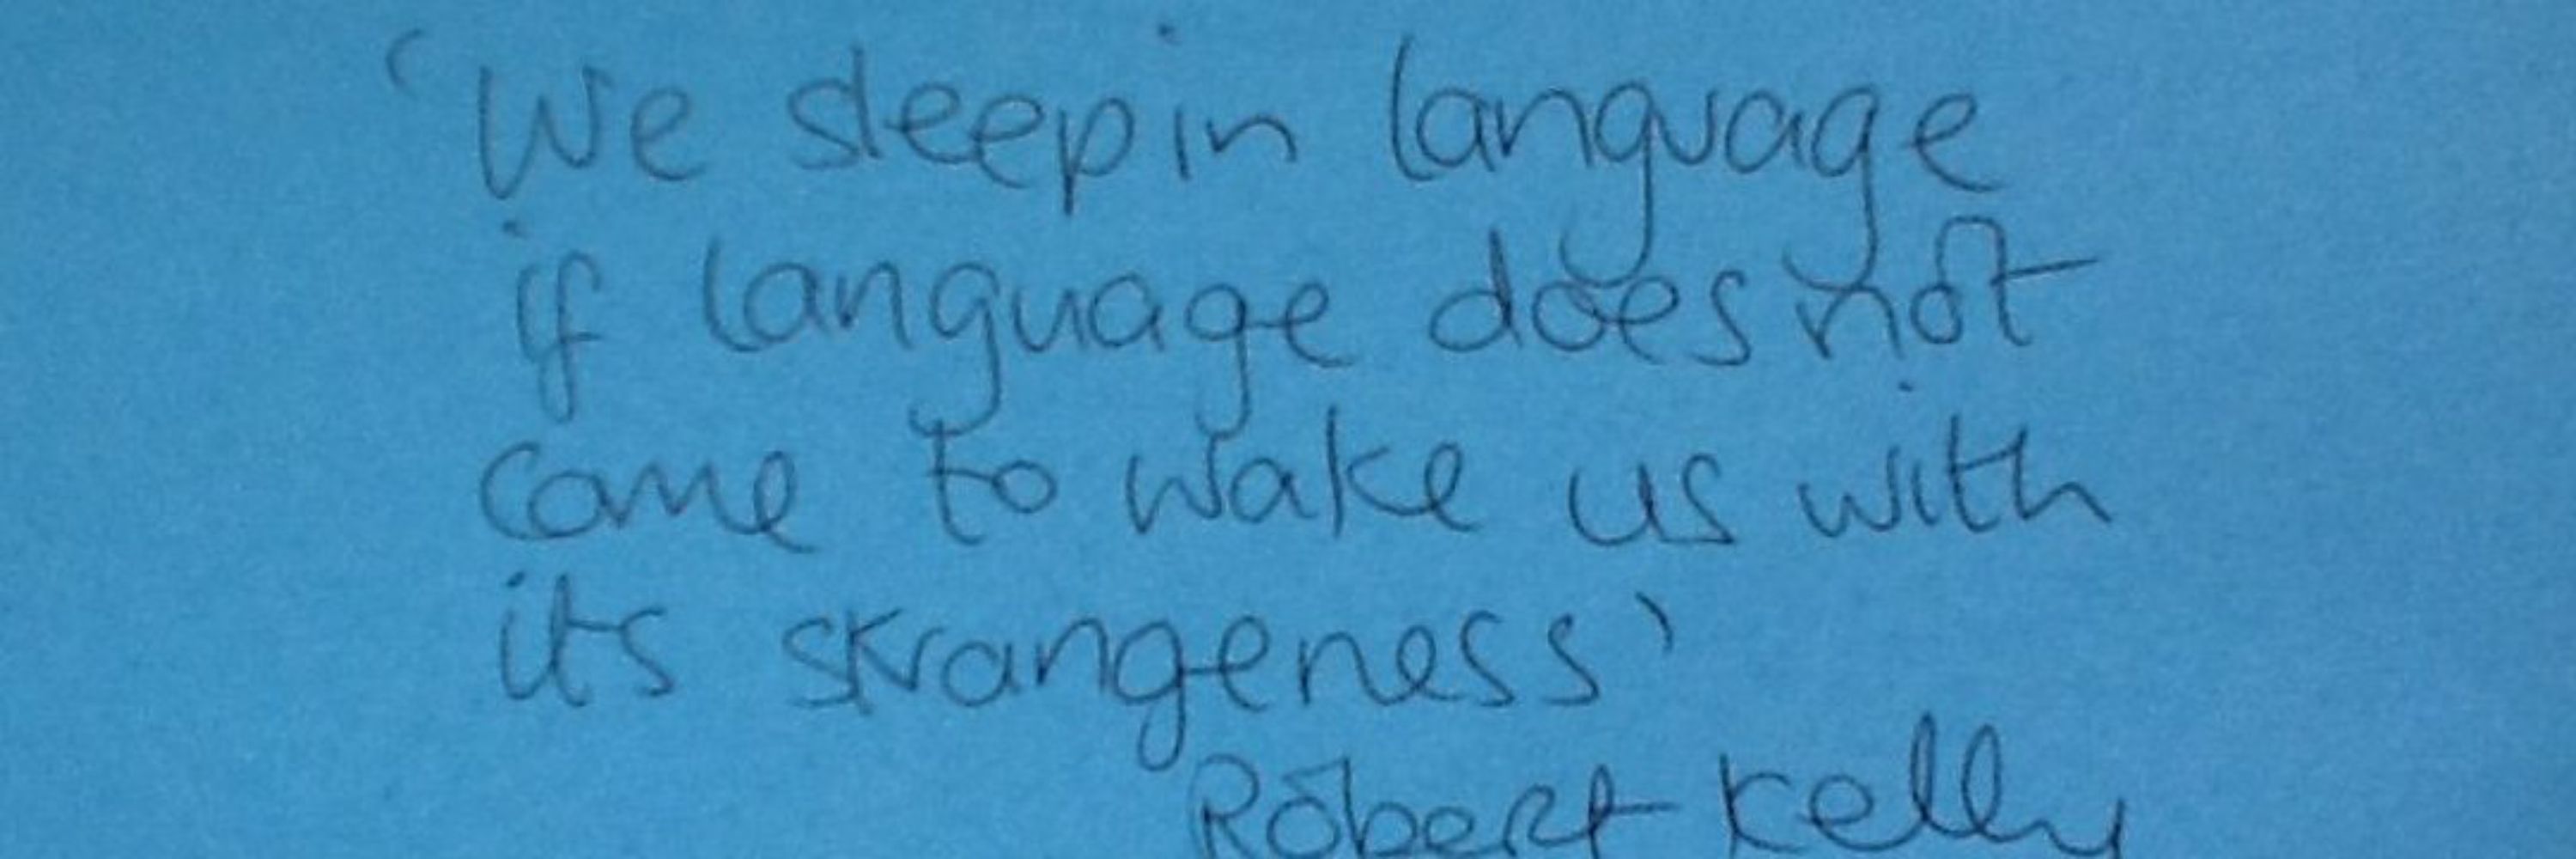 'We sleep in language
if language does not
come to wake us with
its strangeness'
Robert Kelly